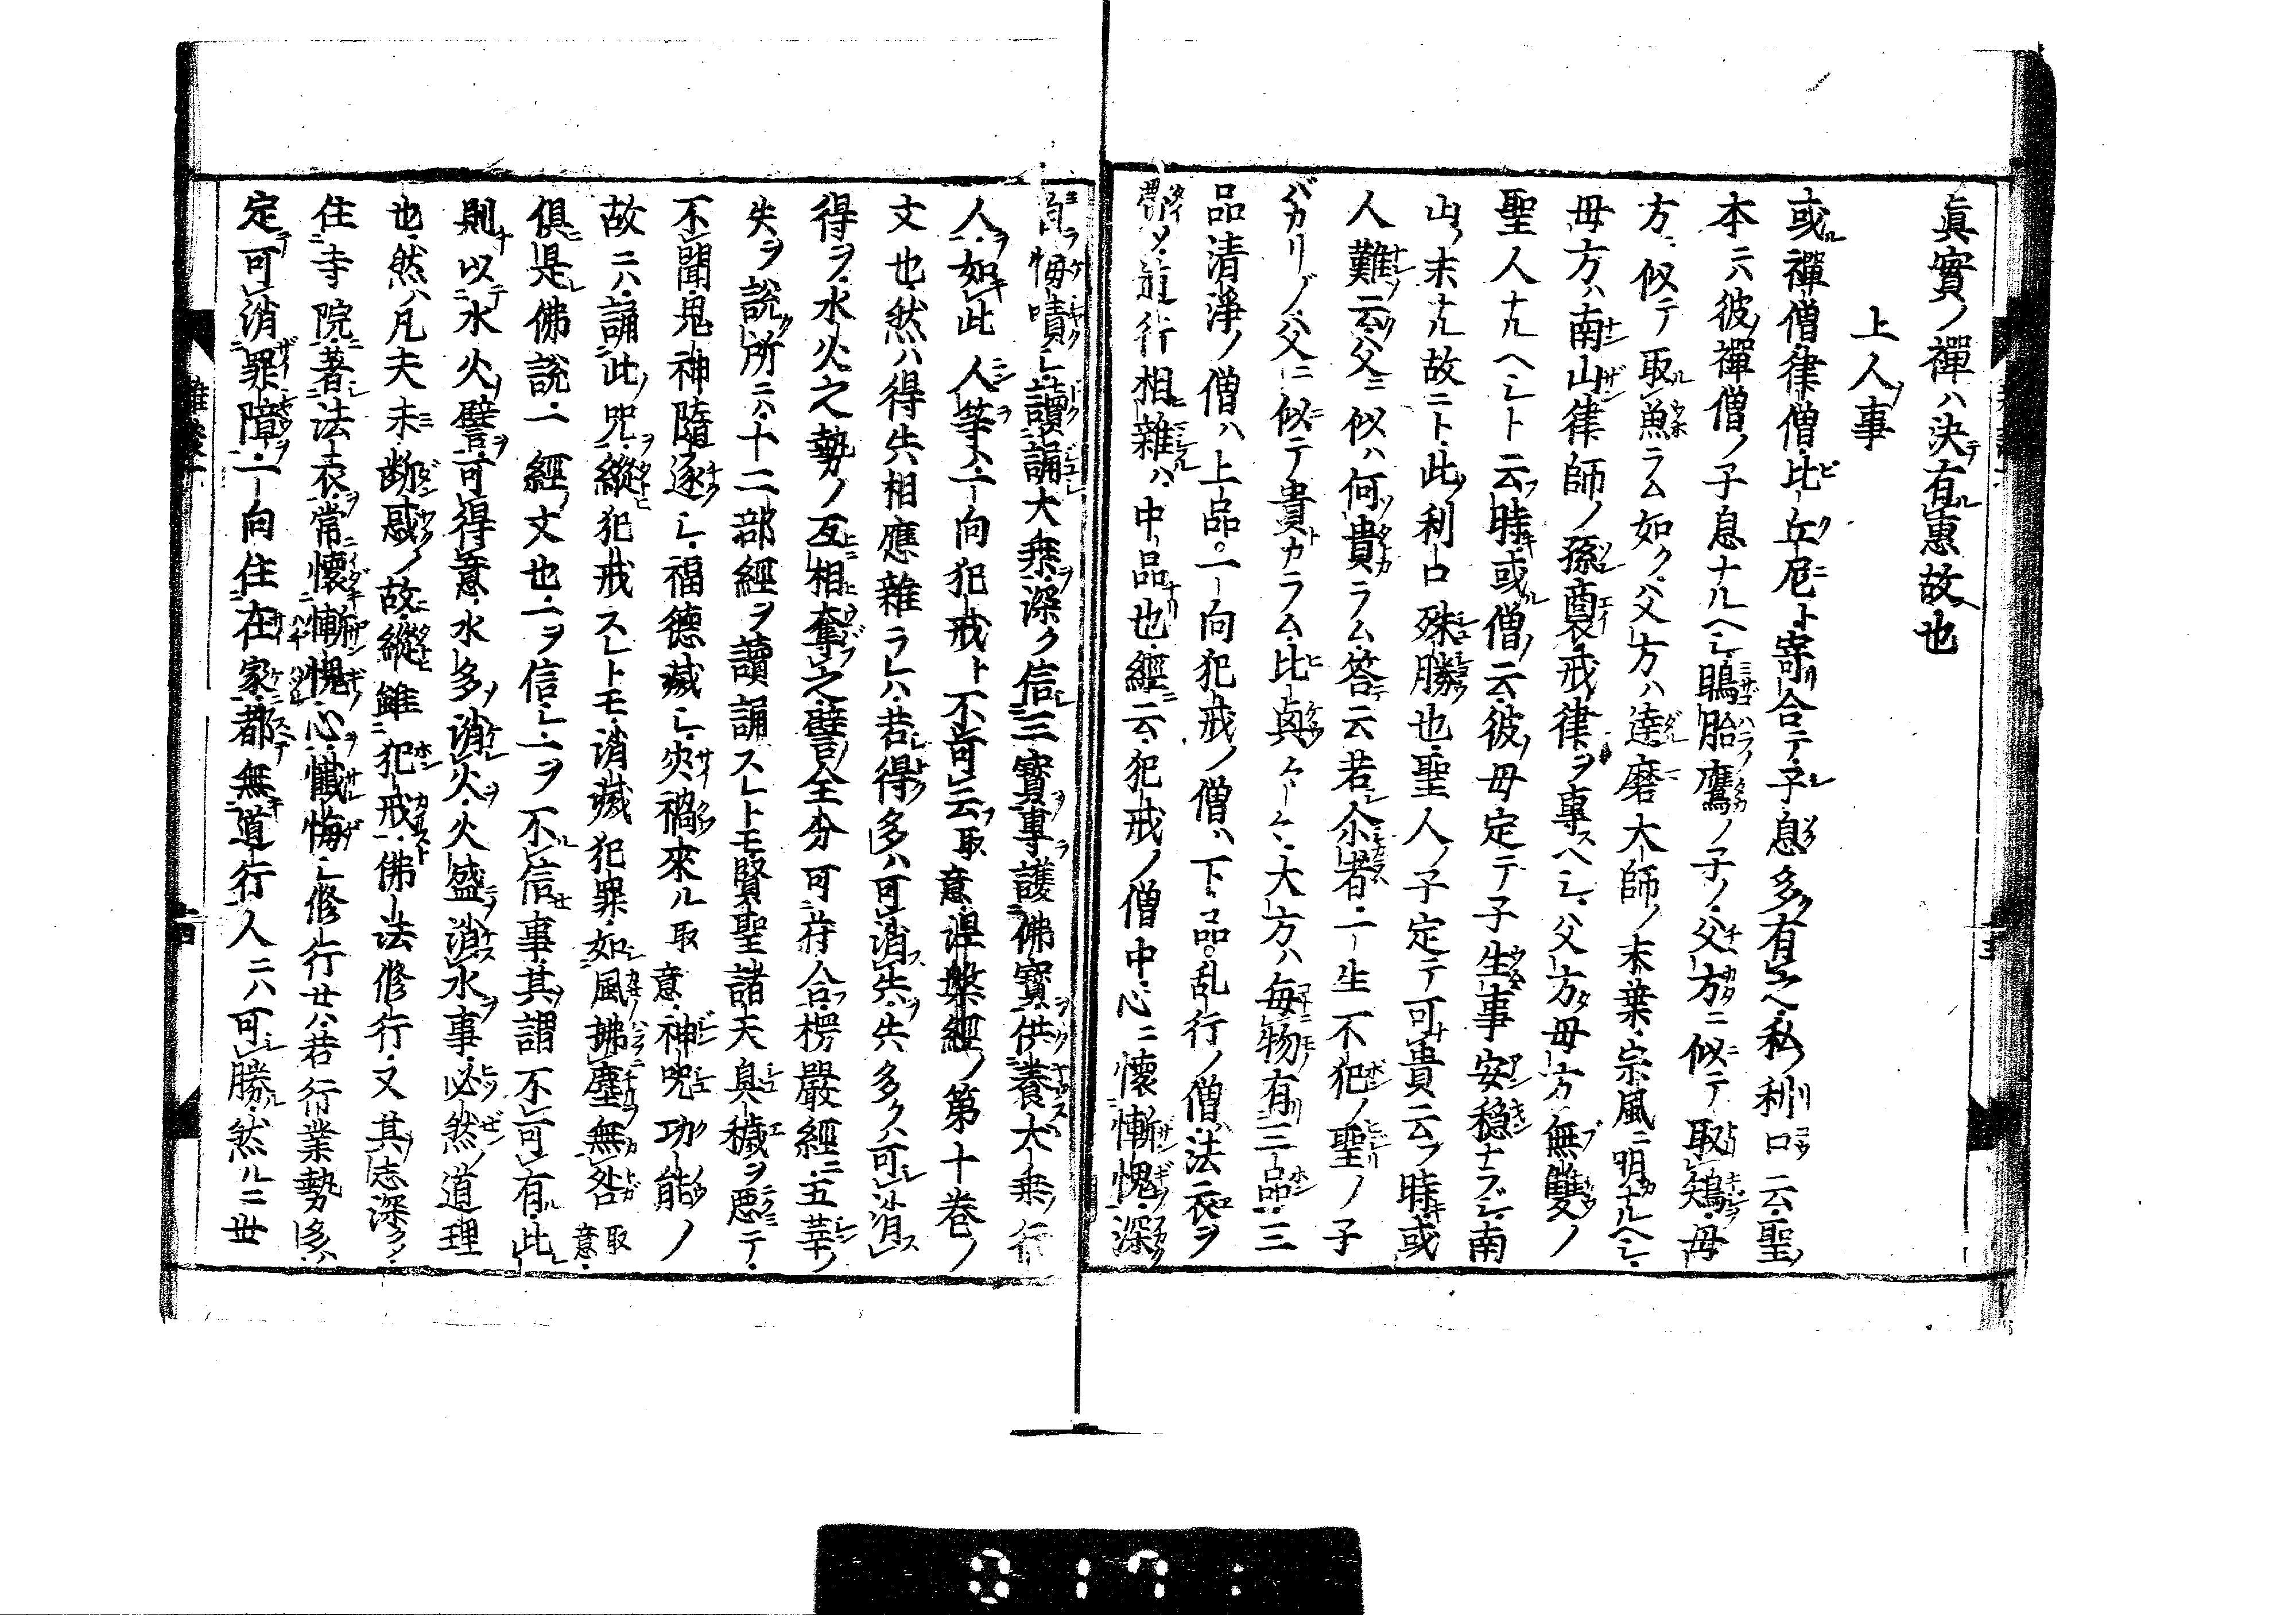 眞實ノ禪ハ決有惠故也
上人事
或禪僧律僧比丘尼ト寄合テ子息多有之私利口云聖
本ニハ彼禪僧ノ子息ナルヘシ鵰胎鷹ノ子ノ父方ニ似テ取鵄母
方ニ似テ取魚ラム如ク父方ハ達磨大師ノ末葉宗風ニ明ナルヘシ
母方ハ南山律師ノ孫裔戒律ヲ專スヘシ父方母方無雙ノ
聖人ナルヘシト云時或僧云彼母定テ子生事安穏ナラズ南
山ノ末ナル故ニト此利口殊勝也聖人ノ子定テ可貴云フ時或
人難云父ニ似ハ何貴ラム答云若尒者一生不犯ノ聖ノ子
バカリゾ父ニ似テ貴カラム比興々々大方ハ毎物有三品三
品清淨ノ僧ハ上品一向犯戒ノ僧ハ下品乱行ノ僧法衣ヲ
帶シ道行相雜ハ中品也經云犯戒ノ僧中心ニ懷慚愧深
自悔嘖シ讀誦大乘深ク信三寳專護佛寳供養大乘行
人如此人等ヲ一向犯戒ト不可云取意涅槃經ノ第十巻ノ
文也然ハ得失相應雜ラレハ若得多ハ可消失失多クハ可消
得ヲ水火之勢ノ互相奪之譬全分可苻合楞嚴經ニ五辛ノ
失ヲ說所ニハ十二部經ヲ讀誦スレトモ賢聖諸天臭穢ヲ惡テ
不聞鬼神隨逐シ福德滅シ灾禍來ル取意神咒功能ノ
故ニハ誦此咒縱犯戒スレトモ消滅犯罪如風拂塵無咎取意
俱是佛說一經文也一ヲ信シ一ヲ不信事其謂不可有此
則以水火譬可得意水多消火火盛消水事必然道理
也然ハ凡夫未断惑ノ故縱雖犯戒佛法修行又其志深ク
住寺院著法衣常懷慚愧心懺悔シ修行せハ若行業勢多ハ
定可消罪障一向住在家都無道行人ニハ可勝然ルニ世